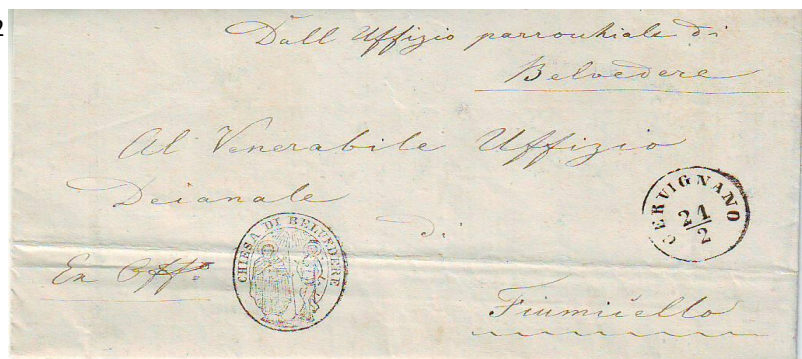 2
Dall Uffizio parrochiale di
Belvedere
Al Venerabile Uffizio
Decanale
di
CERVIGNANO
21/2
CHIESA DI BELVEDERE
Ex Offo
Fiumicello